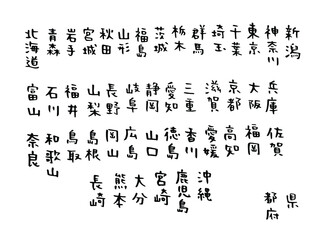 北海道 青森 岩手 宮城 秋田 山形 福島 茨城 栃木 群馬 埼玉 千葉 東京 神奈川 新潟
富山 石川 福井 山梨 長野 岐阜 静岡 愛知 三重 滋賀 京都 大阪 兵庫
奈良 和歌山 鳥取 島根 岡山 広島 山口 徳島 香川 愛媛 高知 福岡 佐賀
長崎 熊本 大分 宮崎 鹿児島 沖縄 都府 県